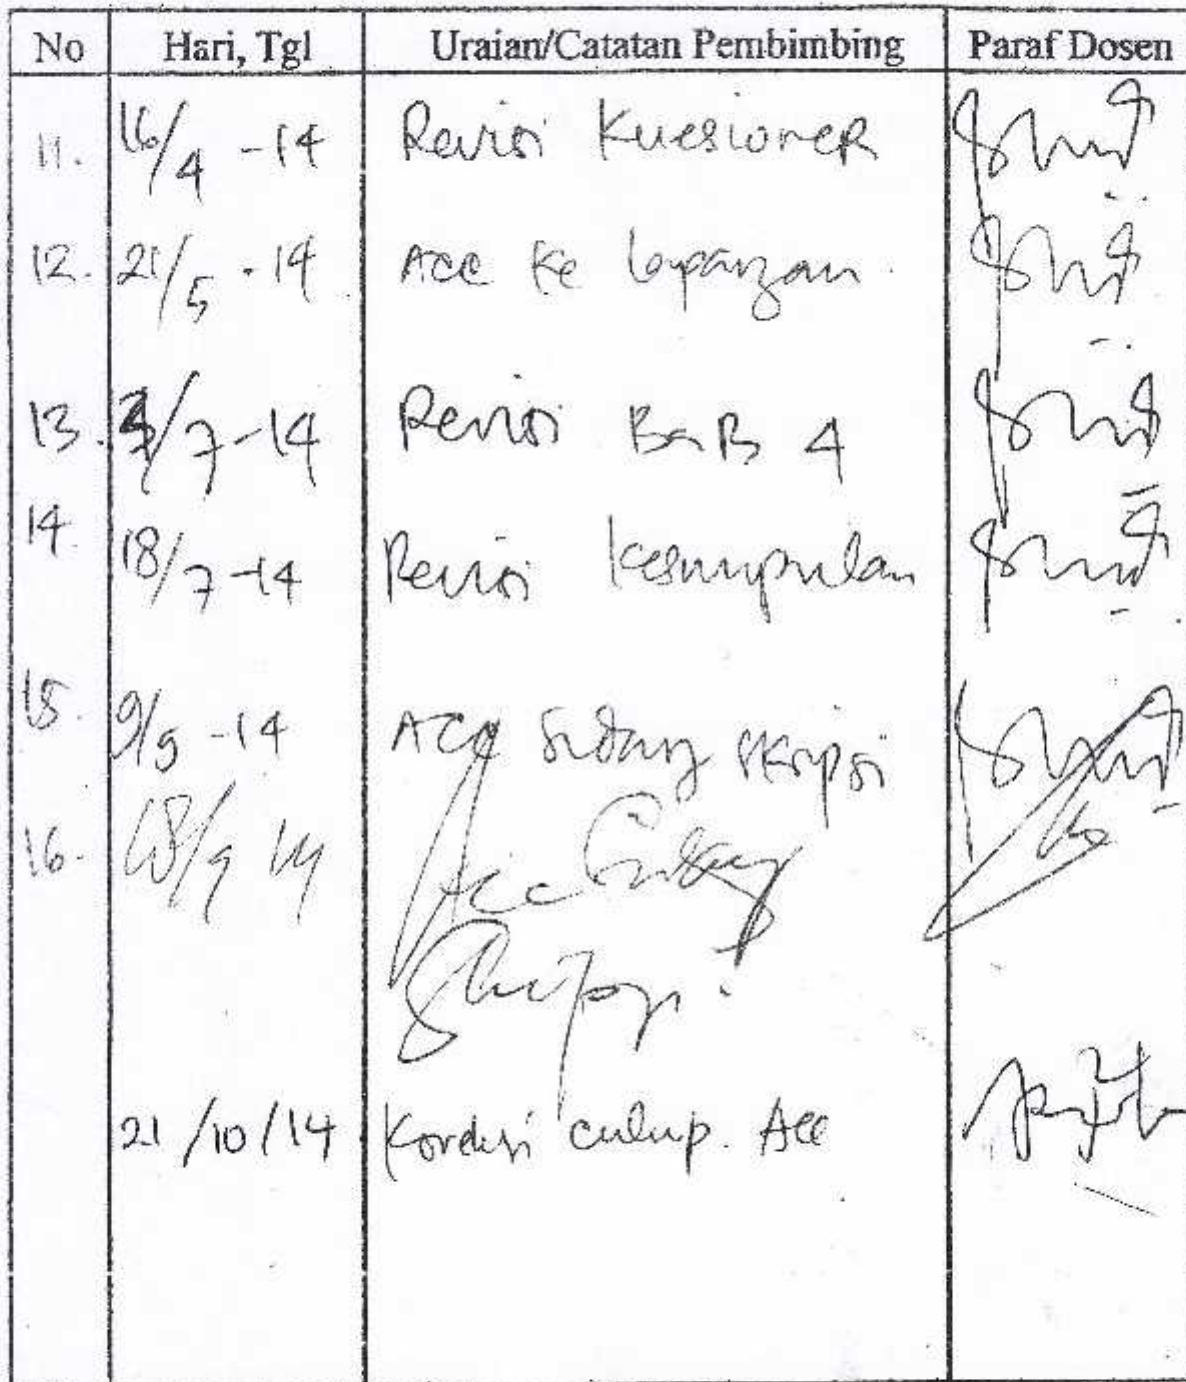 No Hari, Tgl Uraian/Catatan Pembimbing Paraf Dosen
11. 16/4 -14 Revisi Kuesioner
12. 21/5 -14 Acc ke lapangan
13. /7-14 Revisi BaB 4
14. 18/7-14 Revisi kesimpulan
15. 9/9 -14 Acc Sidang skripsi
16. 18/9 14 Acc Sidang
Skripsi.
21/10/14 cukup. Acc